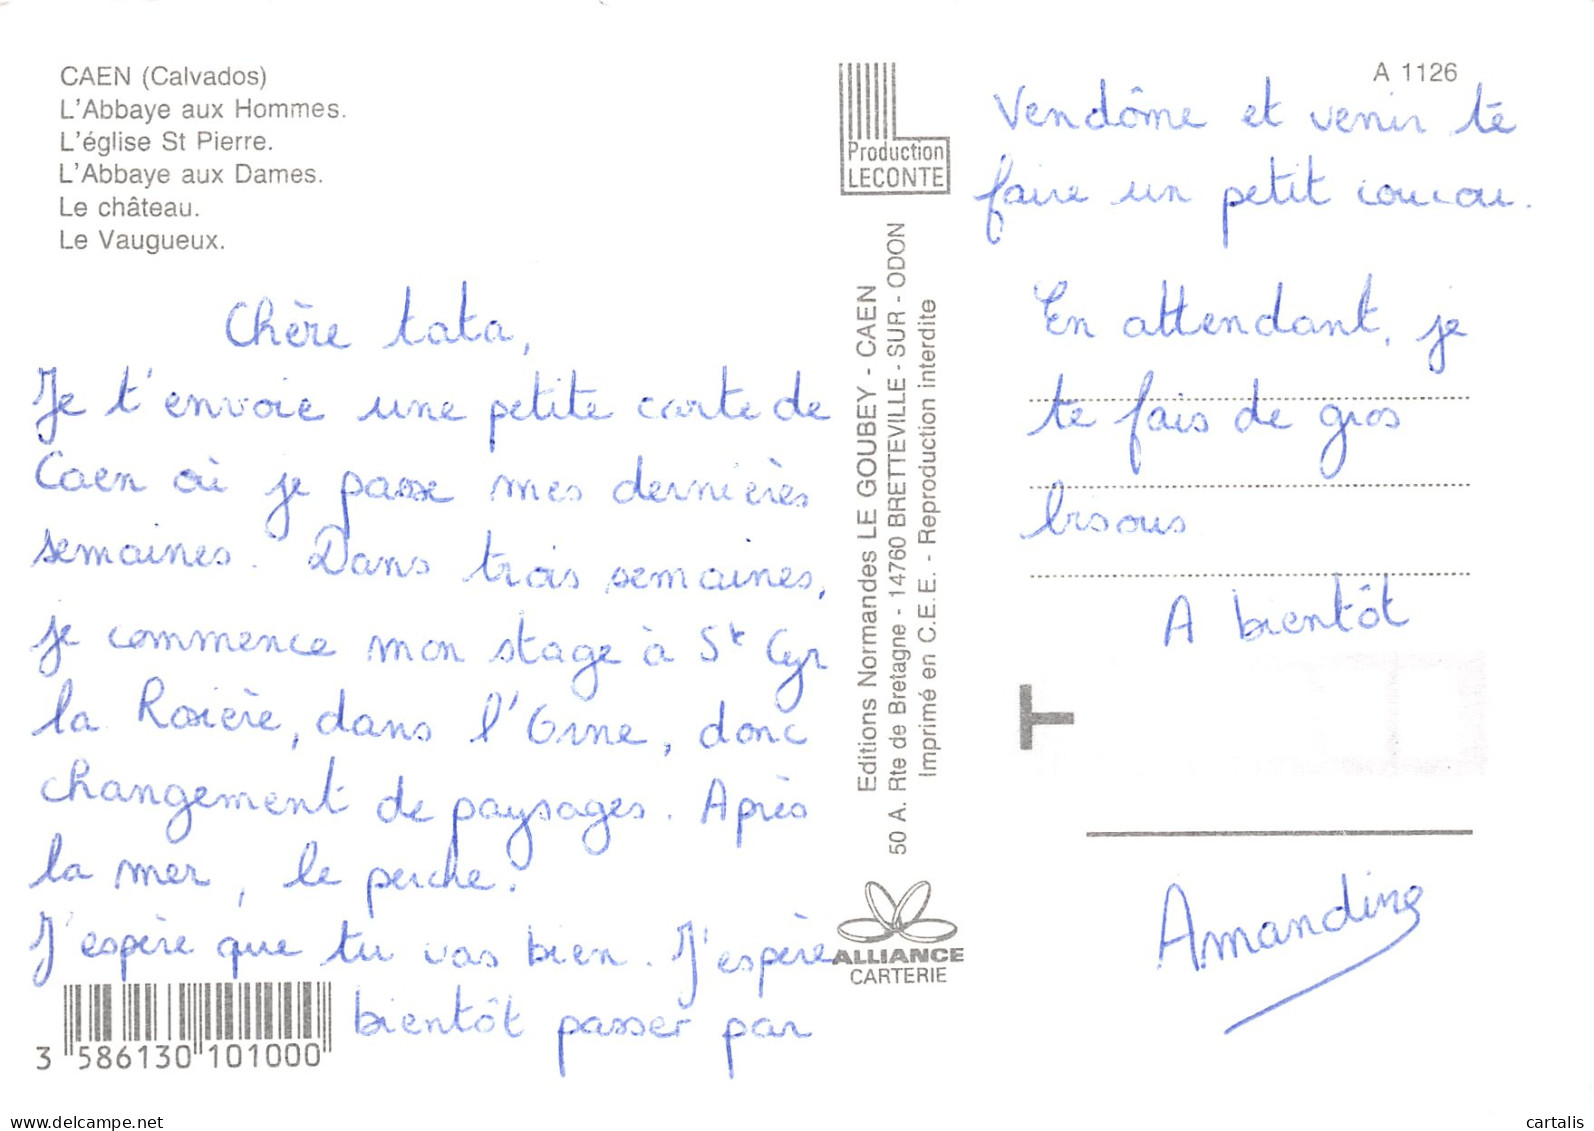 CAEN (Calvados)
L'Abbaye aux Hommes.
L'église St Pierre.
L'Abbaye aux Dames.
Le château.
Le Vaugueux.
Chère tata,
Je t'envoie une petite carte de
Caen où je passe mes dernières
semaines. Dans trois semaines,
je commence mon stage à St Cyr
la Rosière, dans l'Orne, donc
changement de paysages. Après
la mer, le perche.
J'espère que tu vas bien. J'espère
bientôt passer par
3 586130 101000
Production
LECONTE
Editions Normandes LE GOUBEY - CAEN
50 A. Rte de Bretagne - 14760 BRETTEVILLE - SUR - ODON
Imprimé en C.E.E. - Reproduction interdite
ALLIANCE
CARTERIE
A 1126
Vendôme et venir te
faire un petit coucou.
En attendant, je
te fais de gros
bisous
A bientôt
T
Amandine
delcampe.net
cartalis